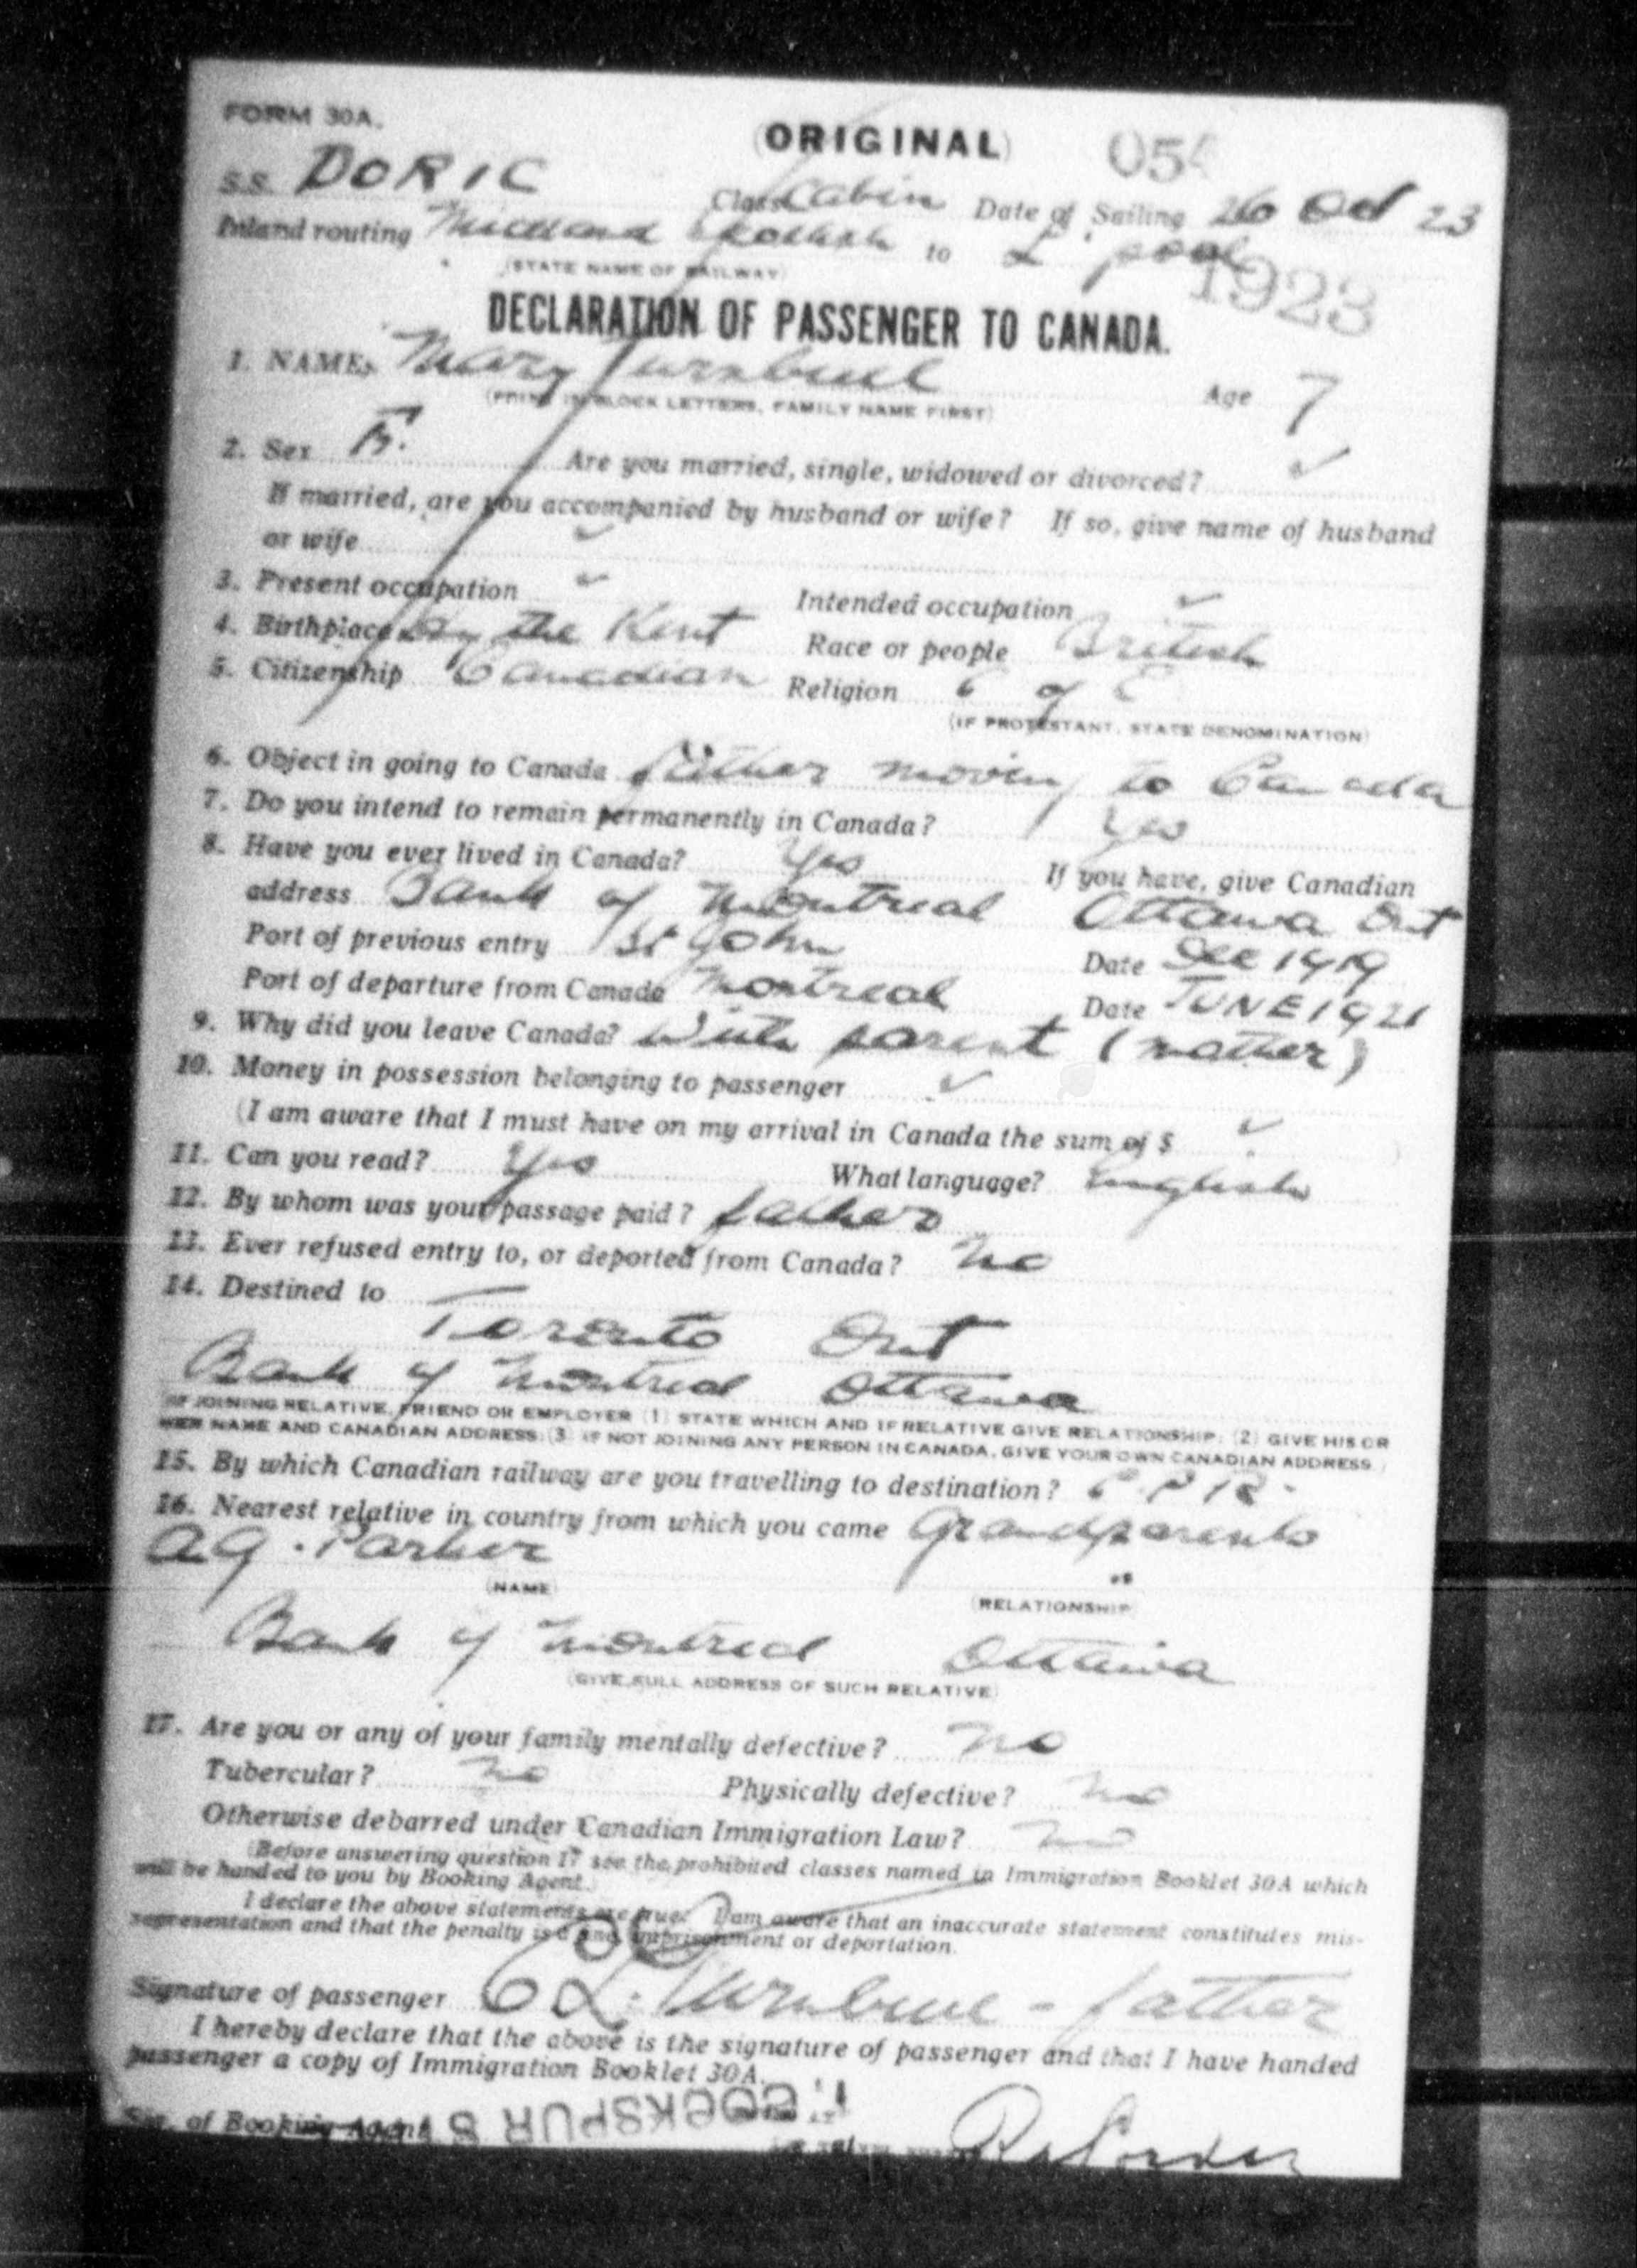 FORM 30A.
(ORIGINAL)
S.S. DORIC Class Cabin Date of Sailing 26 Oct 23
Inland routing Midland to L'pool
(STATE NAME OF RAILWAY)
1923
DECLARATION OF PASSENGER TO CANADA.
1. NAME, Mary Turnbull Age 7
(PRINT IN BLOCK LETTERS, FAMILY NAME FIRST)
2. Sex F. Are you married, single, widowed or divorced? ✓
If married, are you accompanied by husband or wife? If so, give name of husband
or wife ✓
3. Present occupation ✓ Intended occupation ✓
4. Birthplace Hythe Kent Race or people British
5. Citizenship Canadian Religion C of E
(IF PROTESTANT, STATE DENOMINATION)
6. Object in going to Canada father moving to Canada
7. Do you intend to remain permanently in Canada? Yes
8. Have you ever lived in Canada? Yes If you have, give Canadian
address Bank of Montreal Ottawa Ont
Port of previous entry St John Date Dec 1919
Port of departure from Canada Montreal Date JUNE 1921
9. Why did you leave Canada? With parent (mother)
10. Money in possession belonging to passenger ✓
(I am aware that I must have on my arrival in Canada the sum of $ ✓ )
11. Can you read? Yes What language? English
12. By whom was your passage paid? father
13. Ever refused entry to, or deported from Canada? No
14. Destined to
Toronto Ont
Bank of Montreal Ottawa
(IF JOINING RELATIVE, FRIEND OR EMPLOYER (1) STATE WHICH AND IF RELATIVE GIVE RELATIONSHIP; (2) GIVE HIS OR
HER NAME AND CANADIAN ADDRESS; (3) IF NOT JOINING ANY PERSON IN CANADA, GIVE YOUR OWN CANADIAN ADDRESS.)
15. By which Canadian railway are you travelling to destination? C.P.R.
16. Nearest relative in country from which you came Grandparents
A.G. Parker
(NAME) (RELATIONSHIP)
Bank of Montreal Ottawa
(GIVE FULL ADDRESS OF SUCH RELATIVE)
17. Are you or any of your family mentally defective? No
Tubercular? No Physically defective? No
Otherwise debarred under Canadian Immigration Law? No
(Before answering question 17 see the prohibited classes named in Immigration Booklet 30A which
will be handed to you by Booking Agent.)
I declare the above statements are true. I am aware that an inaccurate statement constitutes mis-
representation and that the penalty is a fine, imprisonment or deportation.
Signature of passenger Turnbull - father
I hereby declare that the above is the signature of passenger and that I have handed
passenger a copy of Immigration Booklet 30A.
Sig. of Booking Agent 1, COCKSPUR ST